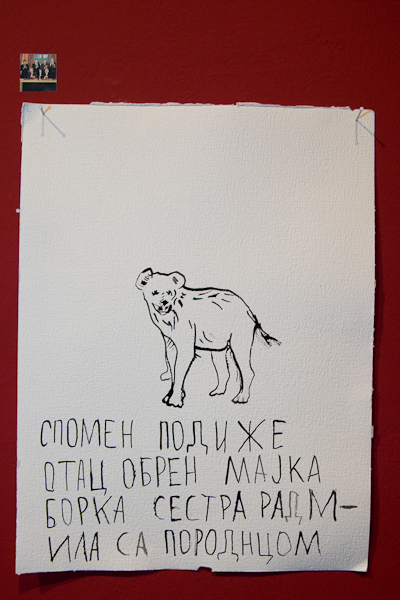 СПОМЕН ПОДИЖЕ
ОТАЦ ОБРЕН МАЈКА
БОРКА СЕСТРА РАДМ-
ИЛА СА ПОРОДНЦОМ